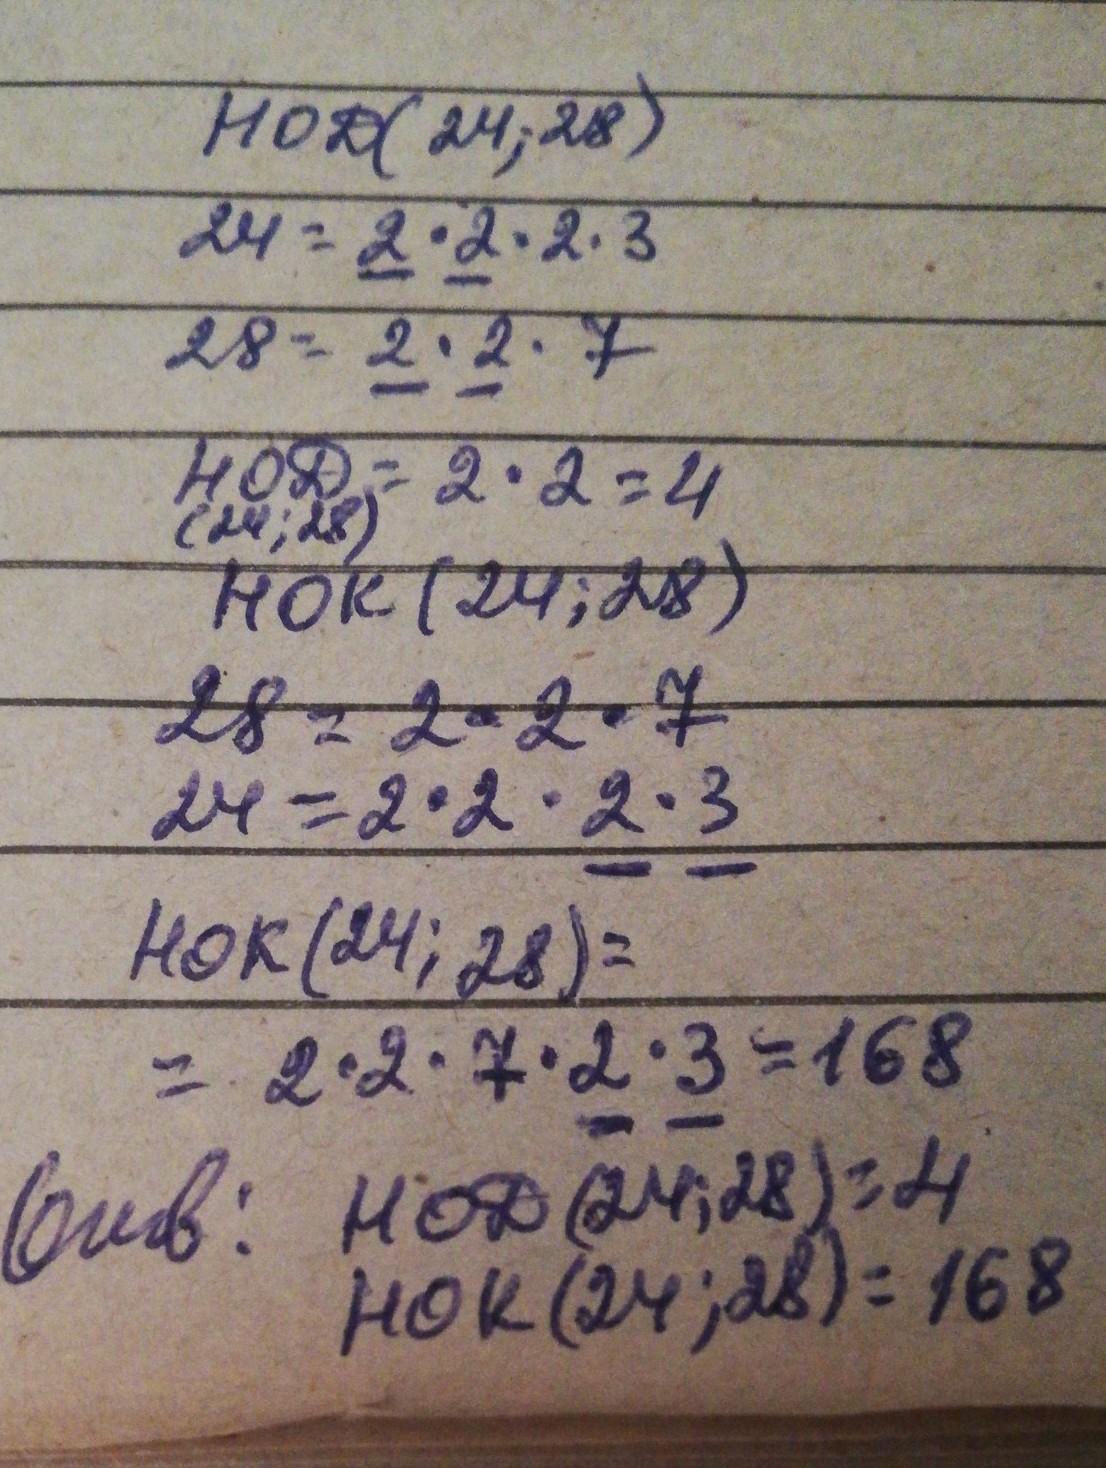 НОД(24;28)
24 = 2 · 2 · 2 · 3
28 = 2 · 2 · 7
НОД = 2 · 2 = 4
(24;28)
НОК(24;28)
28 = 2 · 2 · 7
24 = 2 · 2 · 2 · 3
НОК(24;28)=
= 2 · 2 · 7 · 2 · 3 = 168
Отв: НОД(24;28)=4
НОК(24;28)= 168